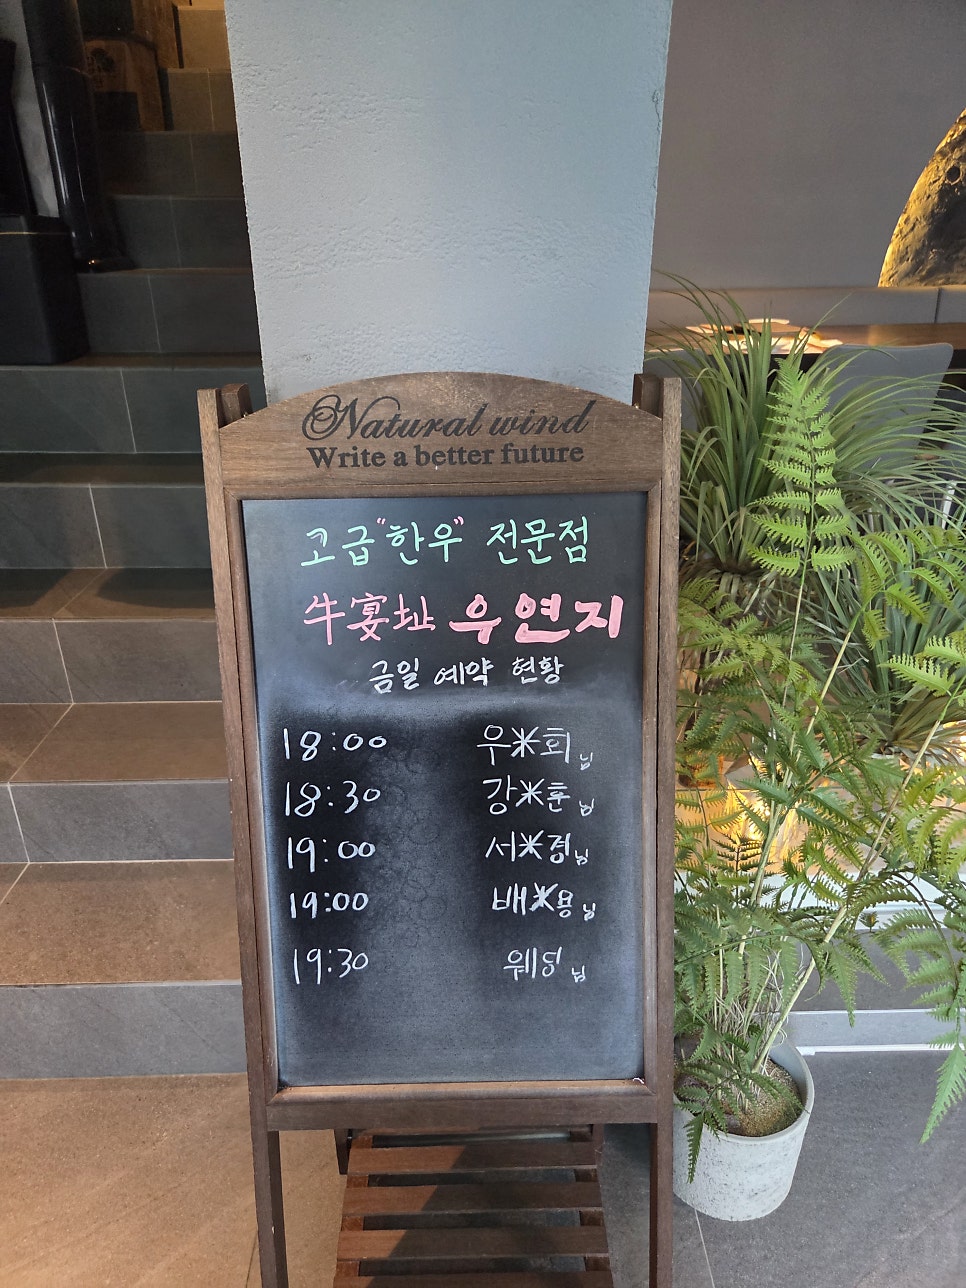 Natural wind
Write a better future
고급"한우" 전문점
牛宴址 우연지
금일 예약 현황
18:00 우*희님
18:30 강*훈님
19:00 서*경님
19:00 배*용님
19:30 웨딩님